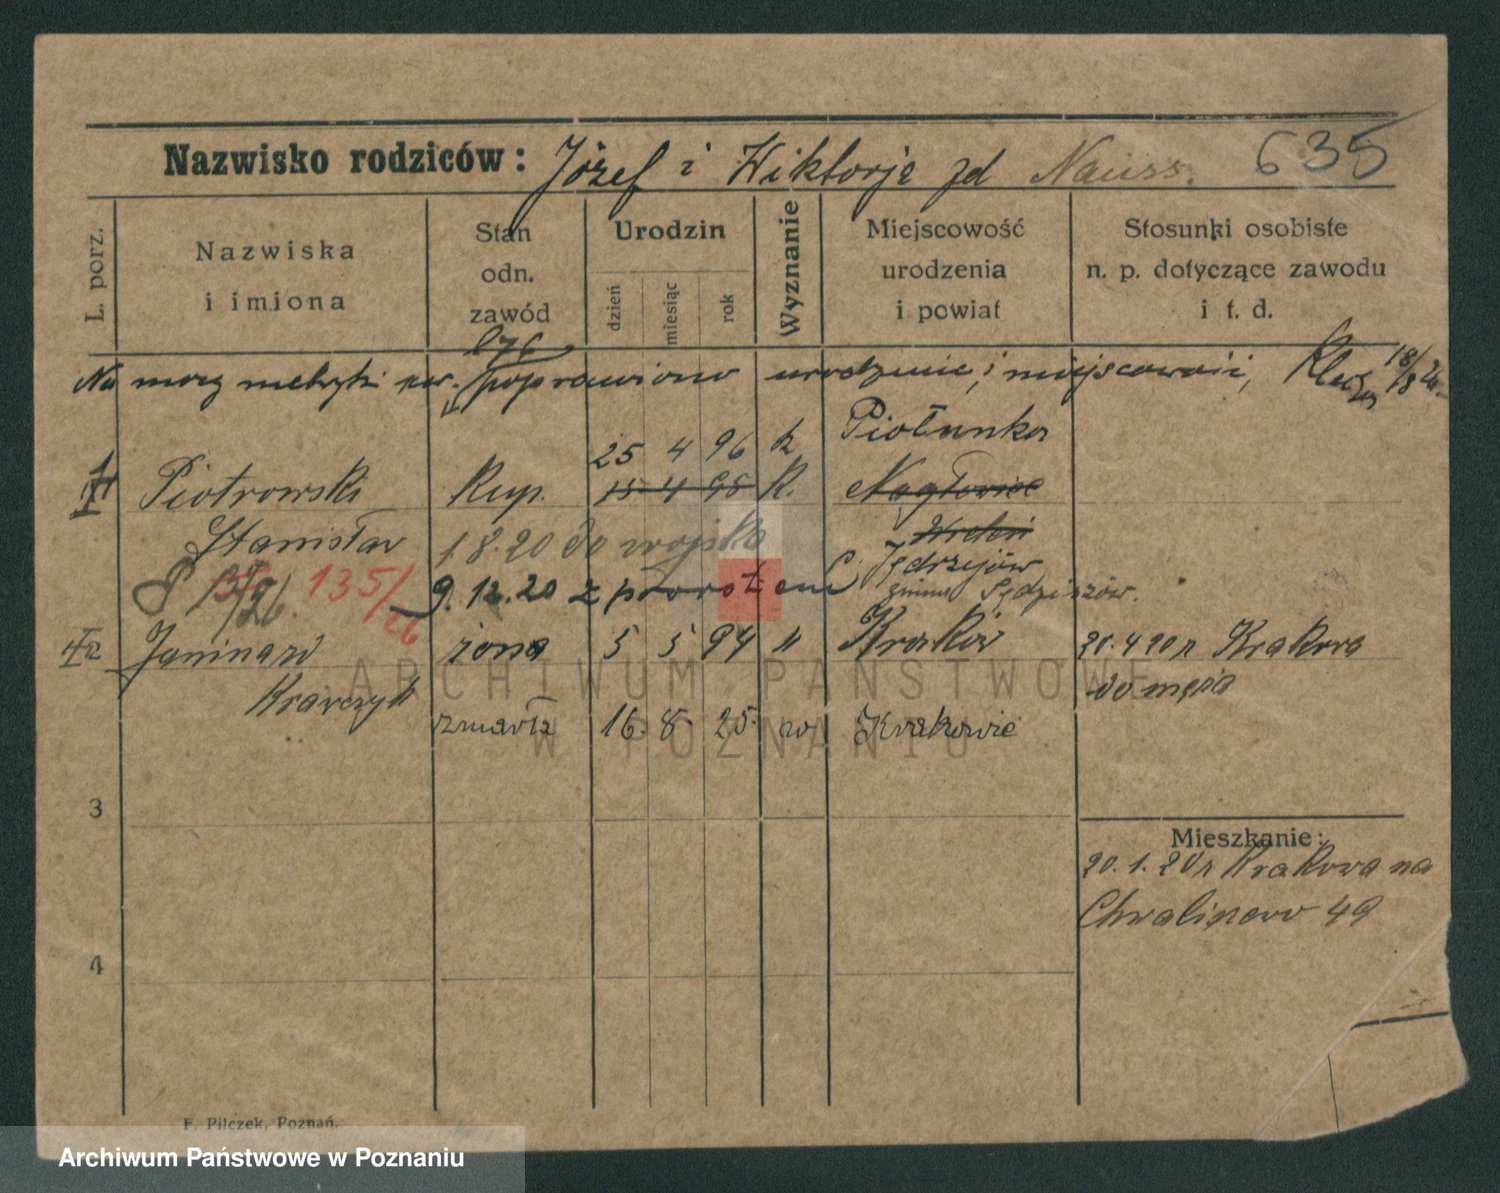 635
Nazwisko rodziców: Józef i Wiktorje zd Nauss.
L. porz.
Nazwiska i imiona
Stan odn. zawód
Urodzin
dzień
miesiąc
rok
Wyznanie
Miejscowość urodzenia i powiat
Stosunki osobiste n. p. dotyczące zawodu i t. d.
Na mocy metryki poprawiono urodzenie i miejscowości, 18/8 26
Piołunka
25 4 96 k
Piotrowski Kup. 15 4 95 K. Nagłowice
Stanisław 1.8.20 do wojska
Jędrzejów
gmina Sędziszów.
135/26
9.12.20 z powrotem
Janina żona 5 5 94 Kraków 20.4.20 r Krakowa
Krawczyk do męża
zmarła 16. 8. 25. w Krakowie
3
Mieszkanie:
20.1.20 r Krakowa na
Chwaliszewo 49
4
F. Pilczek, Poznań.
ARCHIWUM PAŃSTWOWE
W POZNANIU
Archiwum Państwowe w Poznaniu